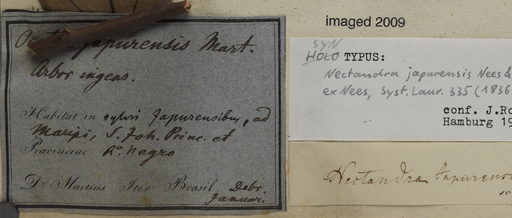 japurensis Mart.
Arbor ingens.
Habitat in sylvis Japurensibus, ad
Maripi, S. Joh. Princ. et
Provinciae R. Negro
Dr. Martius Iter Brasil. Debr.
Januar.
imaged 2009
SYN
HOLO TYPUS:
Nectandra japurensis Nees &
ex Nees, Syst. Laur. 335 (1836
conf. J. Ro
Hamburg 19
Nectandra Japurens